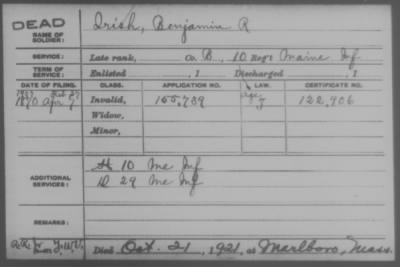 DEAD
NAME OF SOLDIER: Irish, Benjamin R
SERVICE: Late rank, Co B, 10 Reg't Maine Inf
TERM OF SERVICE: Enlisted , 1 Discharged , 1
DATE OF FILING. CLASS. APPLICATION NO. LAW. CERTIFICATE NO.
1870 Apr 7 Invalid, 155,789 122,906
Widow,
Minor,
ADDITIONAL SERVICES: H 10 Me Inf
D 29 Me Inf
REMARKS:
Died Oct. 21, 1921, at Marlboro, Mass.